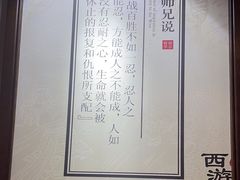 师兄说
战百胜不如一忍，忍人之
能忍，方能成人之不能成，人如
没有忍耐之心，生命就会被
休止的报复和仇恨所支配』
西游